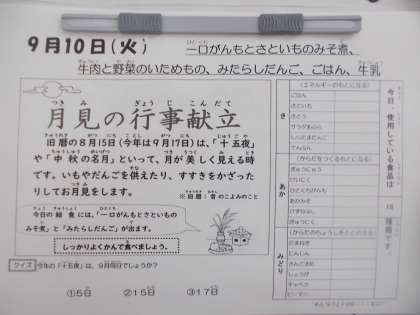 9月10日(火)
一口がんもとさといものみそ煮、
牛肉と野菜のいためもの、みたらしだんご、ごはん、牛乳
月見の行事献立
旧暦の8月15日(今年は9月17日)は、「十五夜」
や「中秋の名月」といって、月が美しく見える時
です。いもやだんごを供えたり、すすきをかざった
りしてお月見をします。
※旧暦:昔のこよみのこと
今日の給食には、「一口がんもとさといもの
みそ煮」と「みたらしだんご」が出ます。
しっかりよくかんで食べましょう。
クイズ 今年の「十五夜」は、9月何日でしょうか?
①5日 ②15日 ③17日
今日、使用している食品は
種類です。
(エネルギーのもとになる)
き
ごはん
さといも
さとう
サラダあぶら
でんぷん
(からだをつくるもとになる)
あか
とりにく
ひとくちがんも
あかみそ
ぎゅうにく
(からだのちょうしをととのえる)
みどり
たまねぎ
にんじん
しょうが
キャベツ
ピーマン